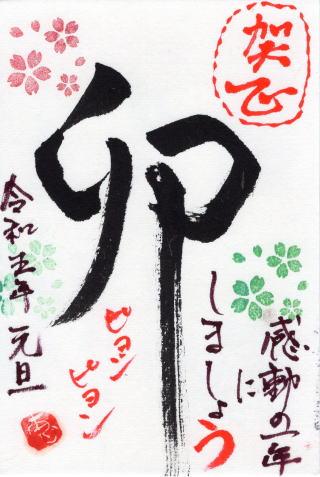 賀正
卯
感動の一年
に
しましょう
ピョン
ピョン
令和五年 元旦